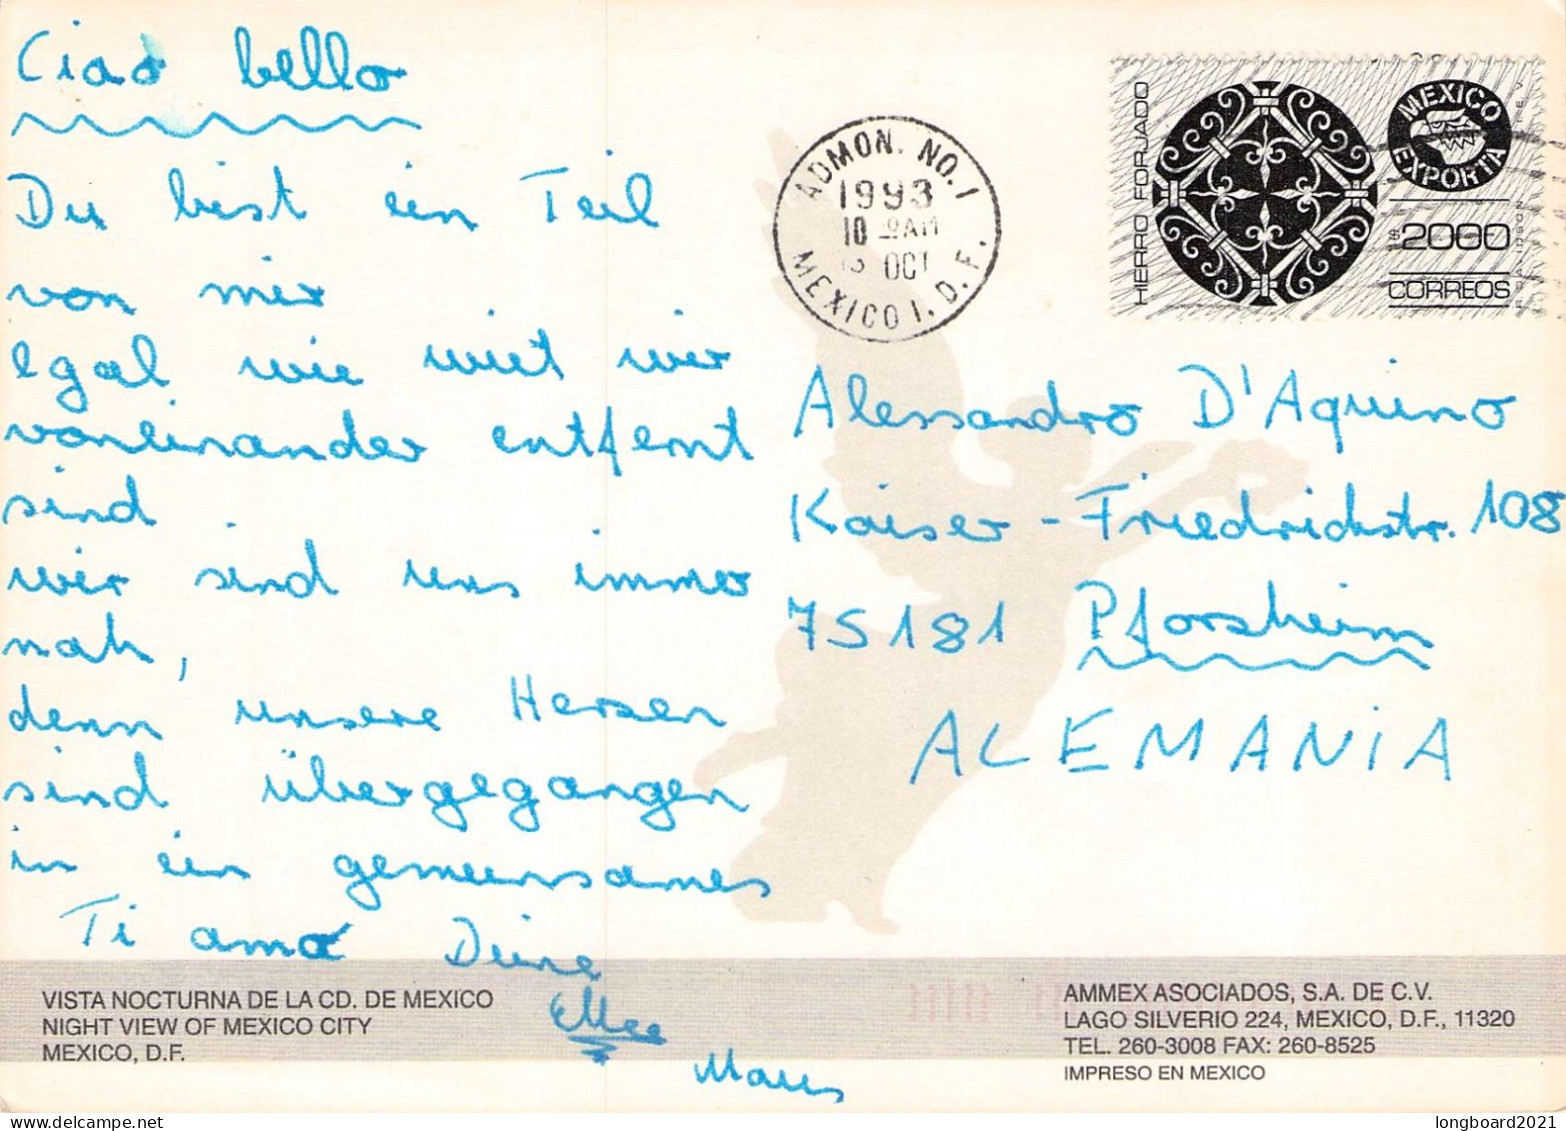 Ciao bello
Du bist ein Teil
von mir
egal wie weit wir
voneinander entfernt
sind
wir sind uns immer
nah,
denn unsere Herzen
sind übergegangen
in ein gemeinsames
Ti amo Deine
Maus
ADMON. NO. 1
1993
10 AM
OCT
MEXICO 1, D.F.
HIERRO FORJADO
MEXICO
EXPORTA
$2000
CORREOS
Alessandro D'Aquino
Kaiser-Friedrichstr. 108
75181 Pforzheim
ALEMANiA
VISTA NOCTURNA DE LA CD. DE MEXICO
NIGHT VIEW OF MEXICO CITY
MEXICO, D.F.
AMMEX ASOCIADOS, S.A. DE C.V.
LAGO SILVERIO 224, MEXICO, D.F., 11320
TEL. 260-3008 FAX: 260-8525
IMPRESO EN MEXICO
longboard2021